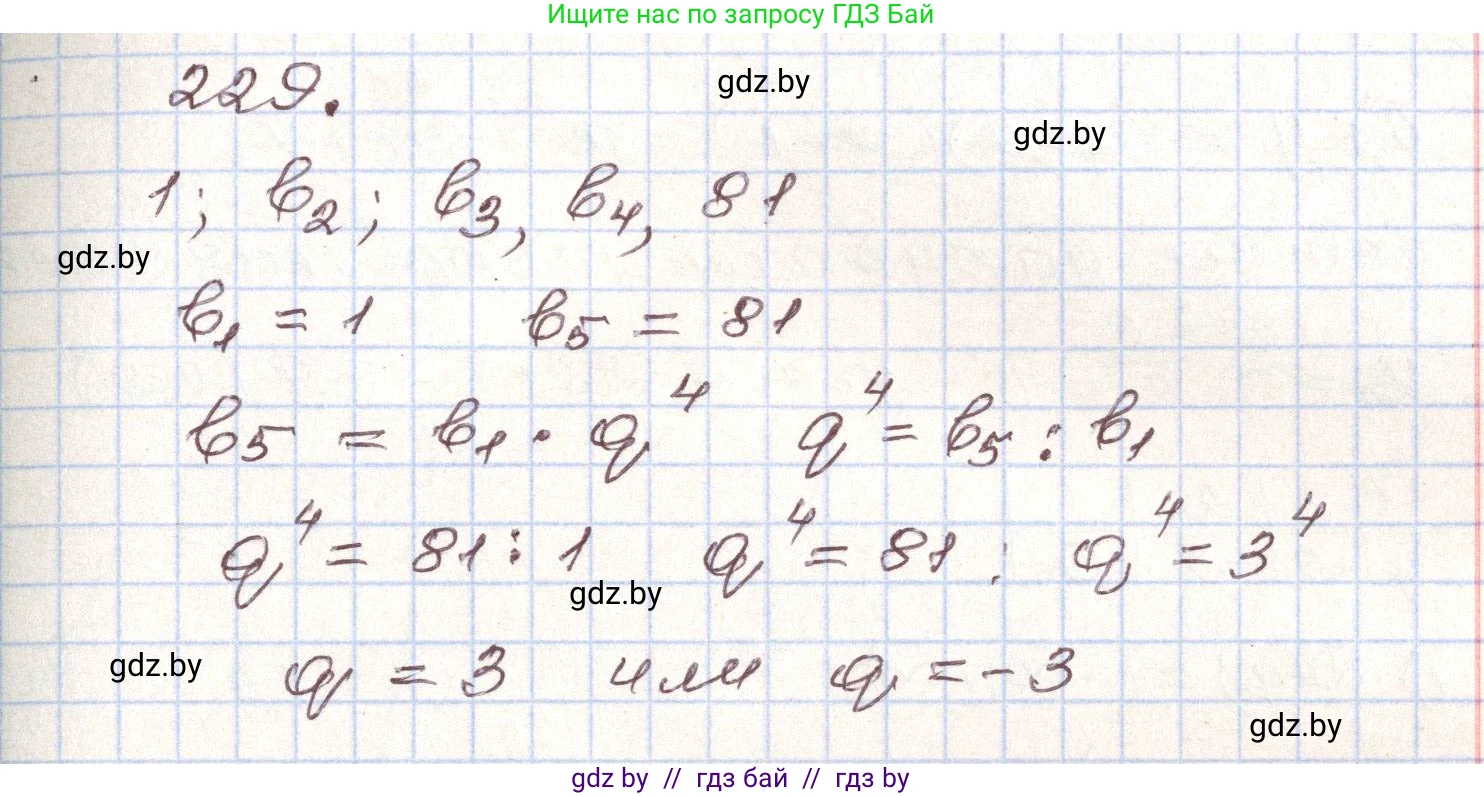 Ищите нас по запросу ГДЗ Бай
229.
gdz.by
gdz.by
1; b₂; b₃, b₄, 81
gdz.by
b₁ = 1 b₅ = 81
b₅ = b₁ · q⁴ q⁴ = b₅ : b₁
q⁴ = 81 : 1 q⁴ = 81 ; q⁴ = 3⁴
gdz.by
gdz.by
q = 3 или q = -3
gdz.by
gdz by // гдз бай // гдз by